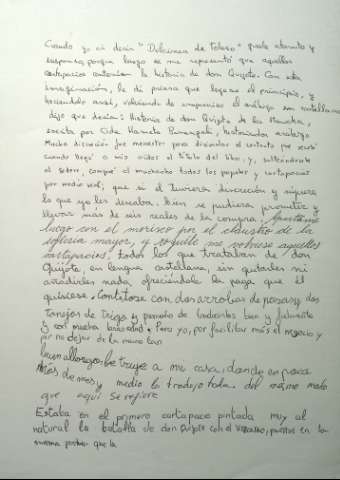 Cuando yo oí decir "Dulcinea del Toboso" quedé atónito y
suspenso, porque luego se me representó que aquellos
cartapacios contenían la historia de don Quijote. Con esta
imaginación, le di priesa que leyese el principio, y
haciéndolo ansí, volviendo de improviso el arábigo en castellano
dijo que decía: Historia de don Quijote de la Mancha,
escrita por Cide Hamete Benengeli, historiador arábigo
Mucha discreción fue menester para disimular el contento que recibí
cuando llegó a mis oídos el título del libro, y, salteándosele
al sedero, compré al muchacho todos los papeles y cartapacios
por medio real; que si él tuviera discreción y supiera
lo que yo los deseaba, bien se pudiera prometer y
llevar más de seis reales de la compra. Apartéme
luego con el morisco por el claustro de la
iglesia mayor, y roguéle me volviese aquellos
cartapacios, todos los que trataban de don
Quijote, en lengua castellana, sin quitarles ni
añadirles nada, ofreciéndole la paga que él
quisiese. Contentóse con dos arrobas de pasas y dos
fanegas de trigo, y prometió de traducirlos bien y fielmente
y con mucha brevedad. Pero yo, por facilitar más el negocio y
por no dejar de la mano tan
buen allazgo, le truje a mi casa, donde en poco
más de mes y medio la tradujo toda, del mismo modo
que aquí se refiere
Estaba en el primero cartapacio pintada muy al
natural la batalla de don Quijote con el vizcaíno, puestos en la
mesma postura que la